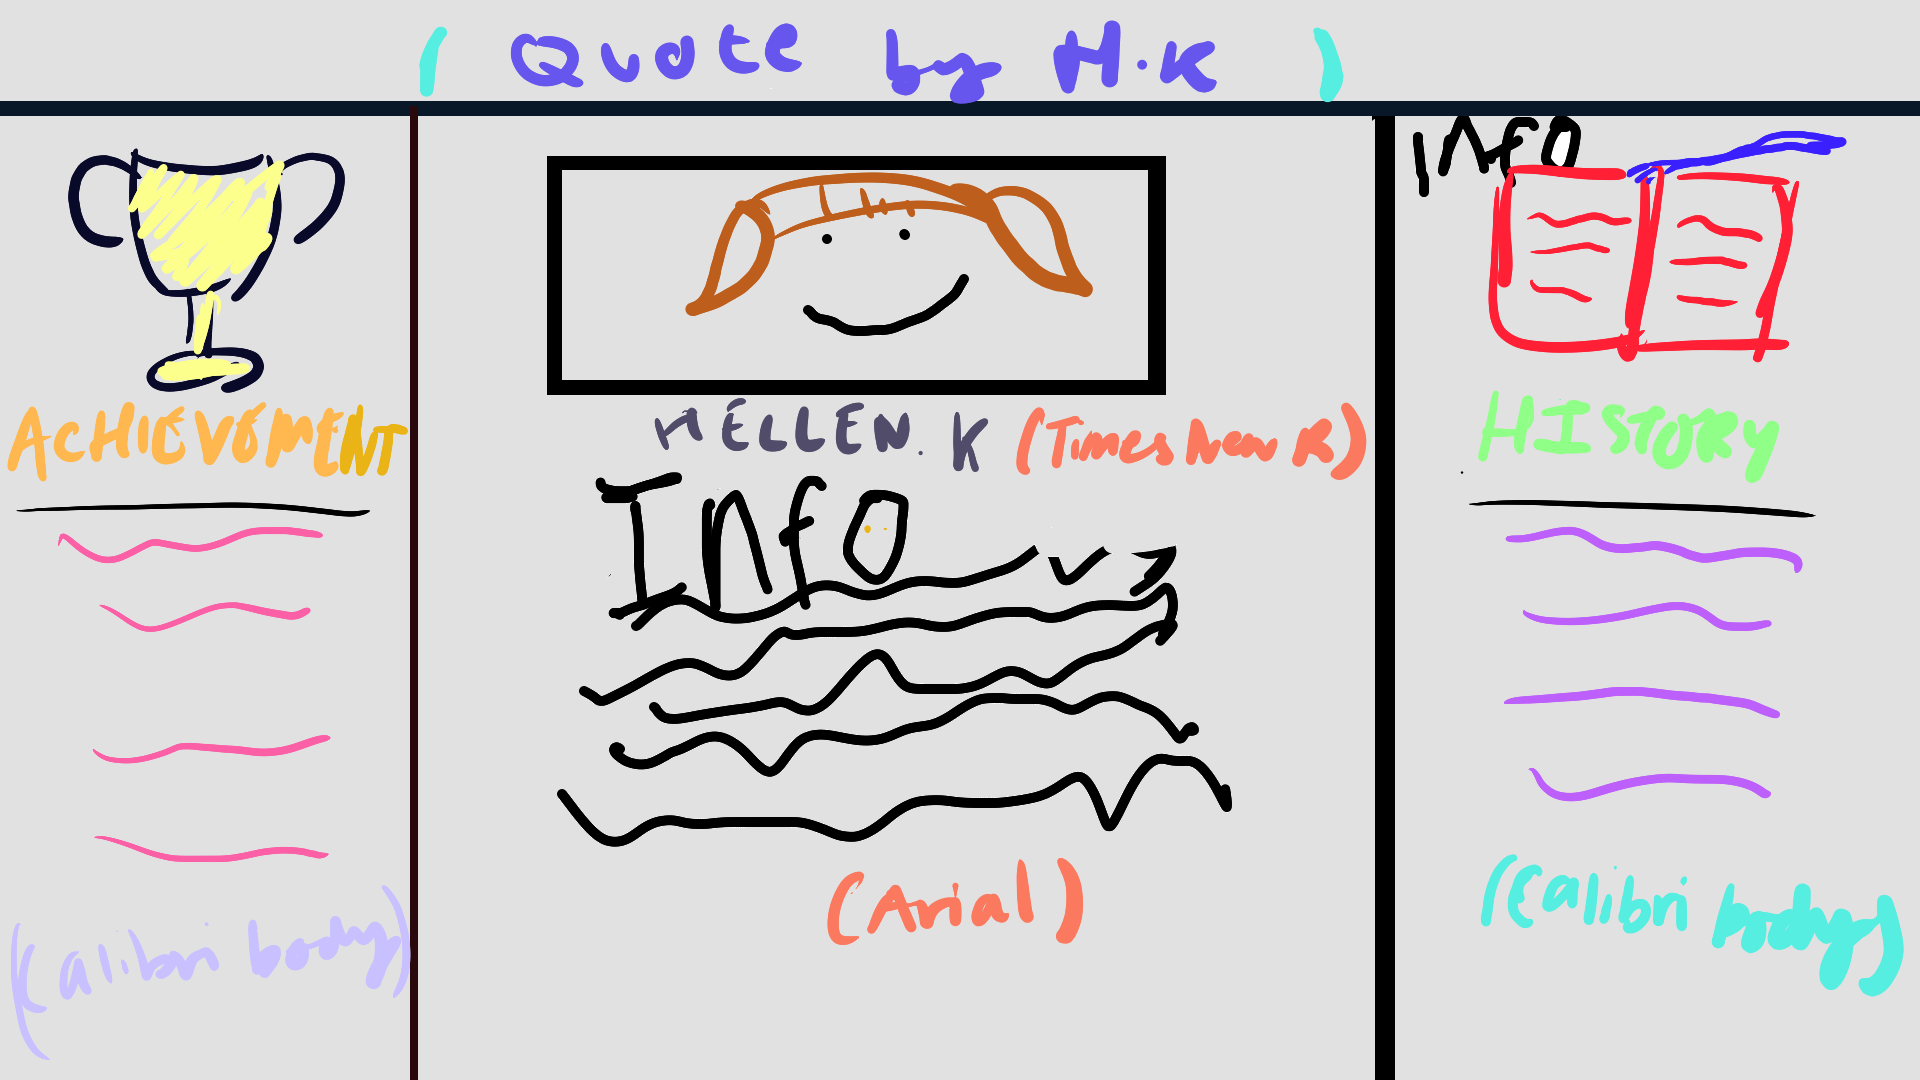 ( Quote by H.K )
ACHIEVEMENT
(Calibri body)
HELLEN. K (Times New R)
Info
(Arial)
Info
HISTORY
(Calibri body)